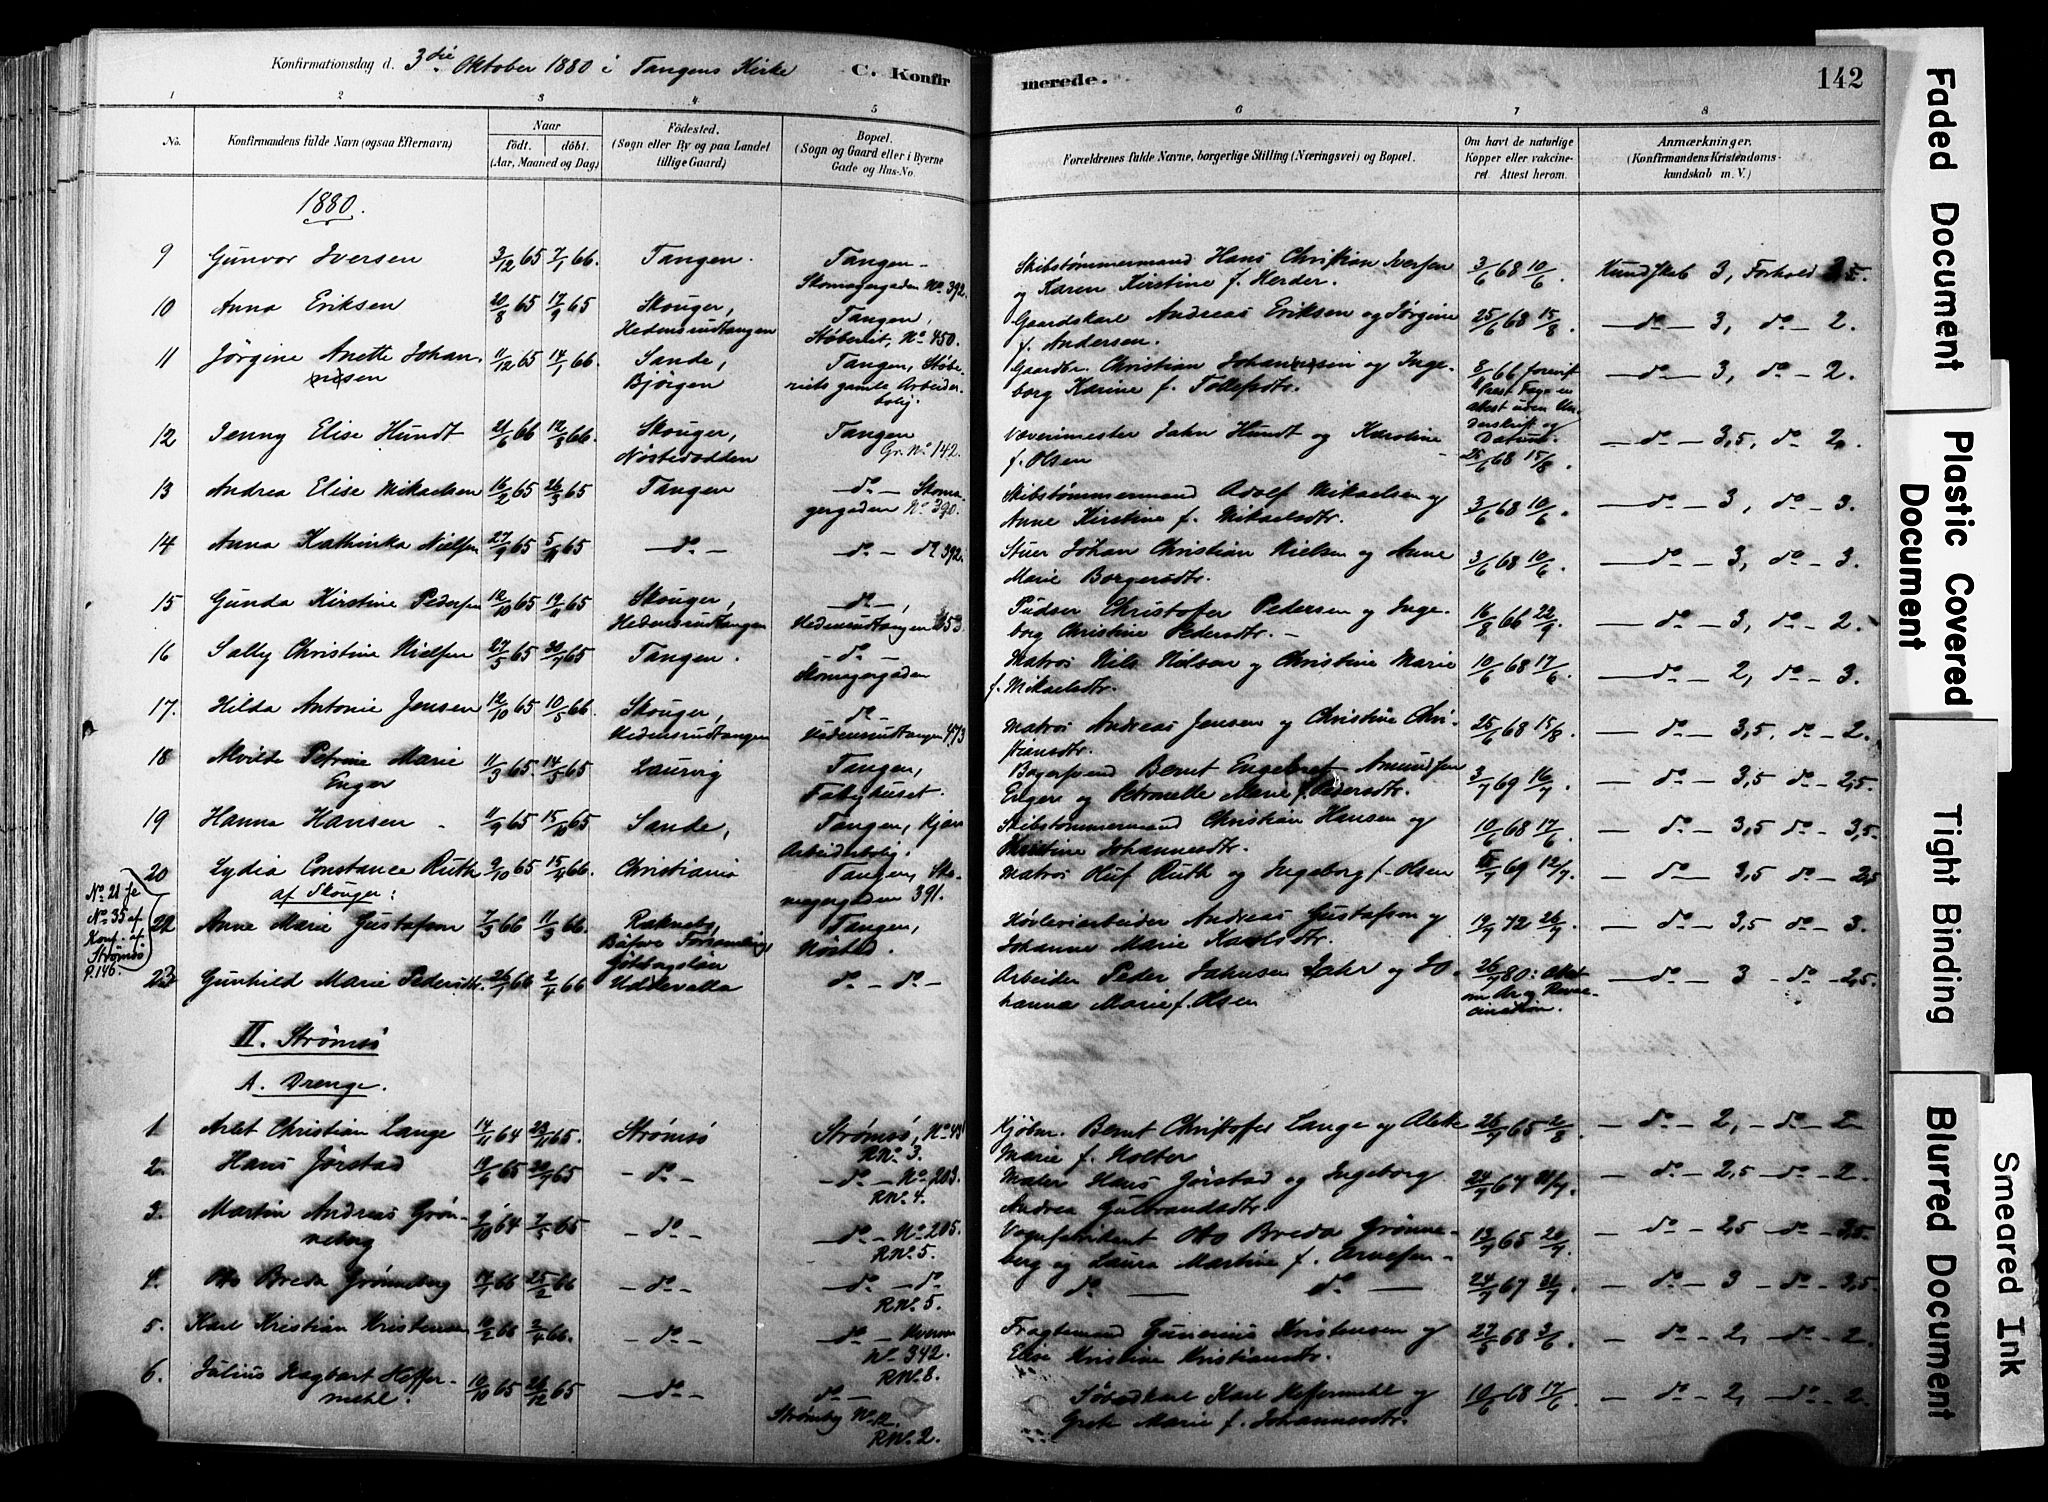 Konfirmationsdag d. 3die Oktober 1880 i Tangens Kirke
C. Konfir
merede.
142
1 2 3 4 5 6 7 8
No.
Konfirmandens fulde Navn (ogsaa Efternavn)
Naar
födt. döbt.
(Aar, Maaned og Dag)
Födested.
(Sogn eller By og paa Landet
tillige Gaard)
Bopæl.
(Sogn og Gaard eller i Byerne
Gade og Hus-No.
Forældrenes fulde Navne, borgerlige Stilling (Næringsvei) og Bopæl.
Om havt de naturlige
Kopper eller vakcine-
ret. Attest herom.
Anmærkninger.
(Konfirmandens Kristendoms-
kundskab m. V.)
1880.
9 Gunvor Iversen 3/12 65 7/1 66. Tangen. Tangen - Skibstømmermand Hans Christian Iversen 3/6 68 10/6. Kundskab 3, Forhold 3,5.
Skomagergaden No 392. og Karen Kirstine f. Herder.
10 Anna Eriksen 20/8 65 17/9 65 Skouger, Tangen, Gaardskarl Andreas Eriksen og Jørgine 25/6 68 15/8. — do — 3, do — 2.
Hedensrudtangen Støberiet, No 450. f. Andersen.
11 Jörgine Anette Johan- 11/12 65 14/1 66. Sande, Tangen, Støbe- Gaardbr. Christian Johannesen og Inge- 8/11 66 — do — 3, do — 2.
sen Bjørgen riets gamle Arbeider- borg Karine f. Tollefsdtr.
bolig. attest uden Un-
derskrift og
Datum.
12 Jenny Elise Hundt 21/6 66 12/8 66. Skouger, Tangen Væverimester Jahn Hundt og Karoline 25/6 68 15/8. — do — 3,5, do — 2,
Nøstedodden Gr. No 142. f. Olsen
13 Andrea Elise Mikaelsen 16/2 65 26/3 65 Tangen — do — Skoma- Skibstømmermand Adolf Mikaelsen og 3/6 68 10/6. — do — 3, do — 3.
gergaden No 390. Anne Kirstine f. Mikaelsdtr.
14 Anna Kathinka Nielsen 65 65 — do — — do — do 392. Stuer Johan Christian Nielsen og Anne 3/6 68 10/6. — do — 3, do — 3.
Marie Borgersdtr.
15 Gunda Kirstine Pedersen 12/10 65 19/11 65 Skouger, — do —, Pudser Christofer Pedersen og Inge- 16/8 66 22/9. — do — 3, do — 2.
Hedensrudtangen Hedensrudtangen 353. borg Christine Pedersdtr. —
16 Sally Christine Nielsen 27/5 65 65 Tangen. — do — Matros Nils Nilsen og Christine Marie 10/6 68 17/6 — do — 2, do — 3.
Skomagergaden f. Mikaelsdtr.
17. Hilda Antonie Jensen 12/10 65 10/5 66. Skouger, do Matros Andreas Jensen og Christine Chri- 25/6 68 15/8. — do — 3,5, do — 2.
Hedensrudtangen Hedensrudtangen 473 stiansdtr.
18 Alvilde Petrine Marie 11/3 65. 14/5 65 Laurvig Tangen, Bernt Engebret Amundsen 3/7 69 16/7 — do — 3,5 do — 2,5.
Enger Enger og Petronelle Marie f. Pedersdtr.
19 Hanna Hansen 11/9 65 65 Sande, Tangen, Skibstømmermand Christian Hansen og 10/6 68 17/6 — do — 3,5 do — 3,5.
Arbeiderbolig. Kirstine Johannesdtr.
20 Lydia Constance Ruth 9/10 65 66. Christiania Tangen, Sko- Matros Oluf Ruth og Ingeborg f. Olsen 69 12/7. — do — 3,5 do — 2,5
magergaden 391.
af Skouger:
No 21 se
No 35 af
Konf. af
Strømsø
p. 146.
22 Anne Marie Gustafson 7/3 66 11/3 66. Tangen, Høvleriarbeider Andreas Gustafson og 19/7 72 26/7 — do — 3,5 do — 3.
Nøsted. Johanne Marie Karlsdtr.
23. Gunhild Marie Pedersdtr. 26/1 66 2/4 66 Uddevalla do — do — Arbeider Peder og Jo- 26/7 80: — do — 3 — do — 2,5.
hanna Marie f. Olsen
II. Strømsø
A. Drenge.
1 Arlet Christian Lange 14/11 64 65. Strømsø Strømsø, No Kjøbm. Bernt Christofer Lange og Alette 26/7 65 2/8. — do — 2, — do — 2
RNo. 3. Marie f. Holter
2. Hans Jörstad 12/6 65 65 — do — — do — No. 203. Maler Hans Jörstad og Ingeborg 24/7 67 31/7. — do — 2,5 — do — 2.
RNo. 4. Andrea Gulbrandsdtr.
3. Martin Andreas Grøn- 9/10 64 7/5 65 — do — do — No. 205. Vognfabrikant Bo Breda Grønne- 19/7 65 26/7. — do — 2,5 — do — 3,5.
neberg RNo. 5. berg og Laura Martine f. Arnesen —
4. Bo Breda Grønneberg 17/1 66 25/2 66 — do — do — do do — do — 24/7 67 31/7 — do — 3 — do — 3,5
RNo. 5.
5. Karl Kristian Kristensen 10/2 66 2/4 66. — do — do — Fragtemand Kristensen og 27/5 68 3/6. — do — 2, — do — 2
No. 342. Elise Kristine Kristiansdtr.
RNo. 8.
6. Julius Hagbart Heffer- 10/10 65 26/12 65 — do — do — Karl Heffermehl og 10/6 68 17/6 — do — 2, — do — 2
mehl. Strømsø No. 12. Grete Marie f. Johannesdtr.
RNo. 2.
Faded Document
Plastic Covered
Document
Tight Binding
Blurred Document
Smeared Ink